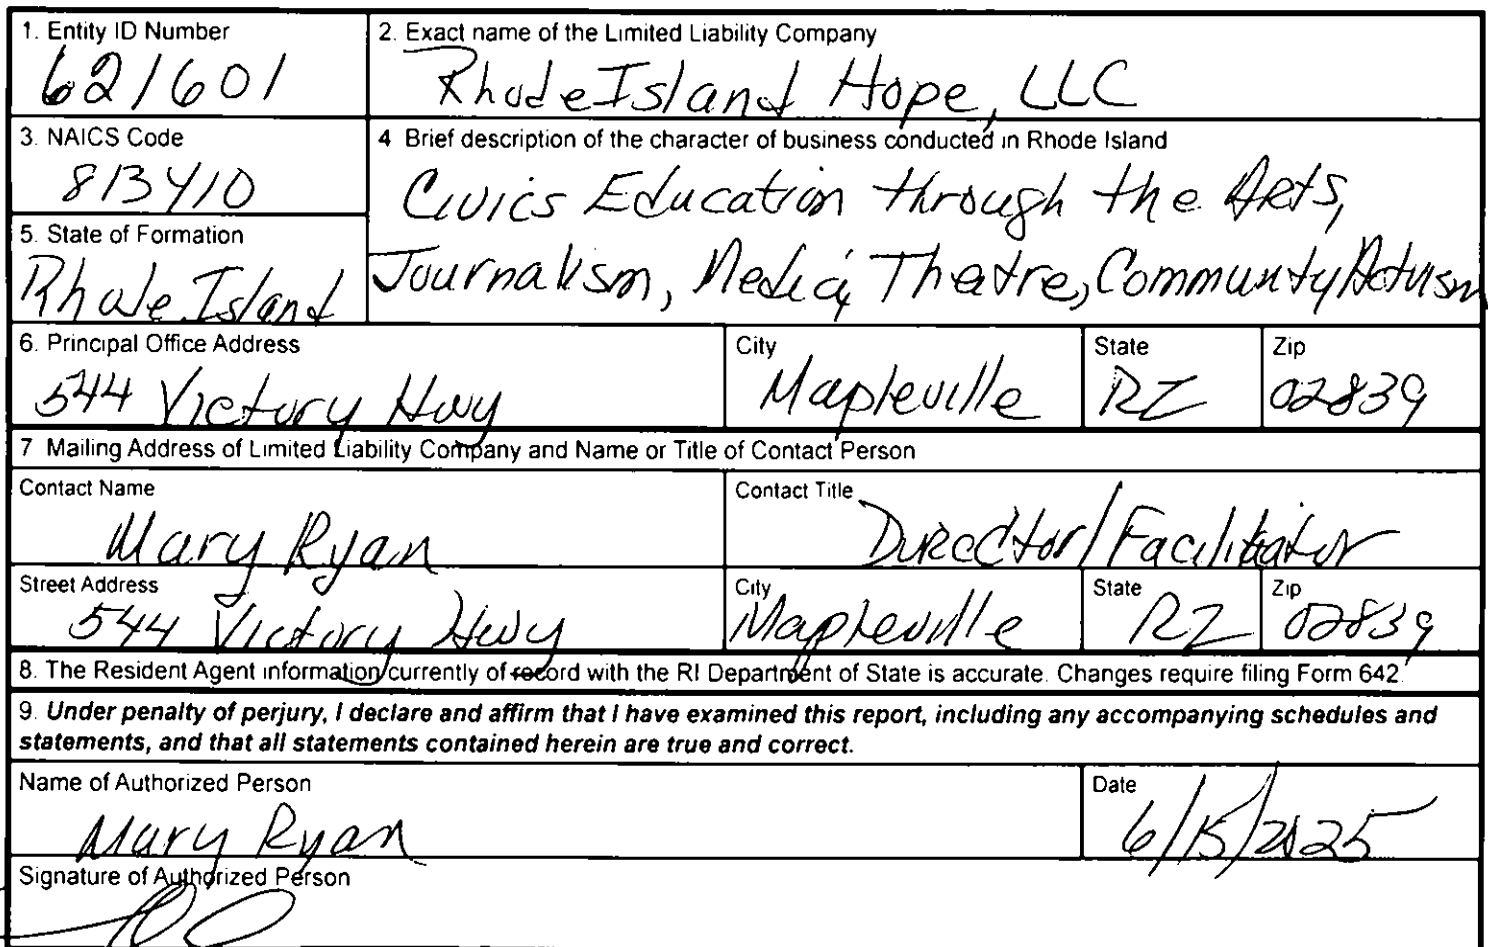 1. Entity ID Number
621601
2. Exact name of the Limited Liability Company
Rhode Island Hope, LLC
3. NAICS Code
813410
4 Brief description of the character of business conducted in Rhode Island
Civics Education through the Arts,
Journalism, Media, Theatre, Community Activism
5. State of Formation
Rhode Island
6. Principal Office Address
544 Victory Hwy
City
Mapleville
State
RI
Zip
02839
7 Mailing Address of Limited Liability Company and Name or Title of Contact Person
Contact Name
Mary Ryan
Contact Title
Director/Facilitator
Street Address
544 Victory Hwy
City
Mapleville
State
RI
Zip
02839
8. The Resident Agent information currently of record with the RI Department of State is accurate. Changes require filing Form 642.
9. Under penalty of perjury, I declare and affirm that I have examined this report, including any accompanying schedules and
statements, and that all statements contained herein are true and correct.
Name of Authorized Person
Mary Ryan
Date
6/15/2025
Signature of Authorized Person